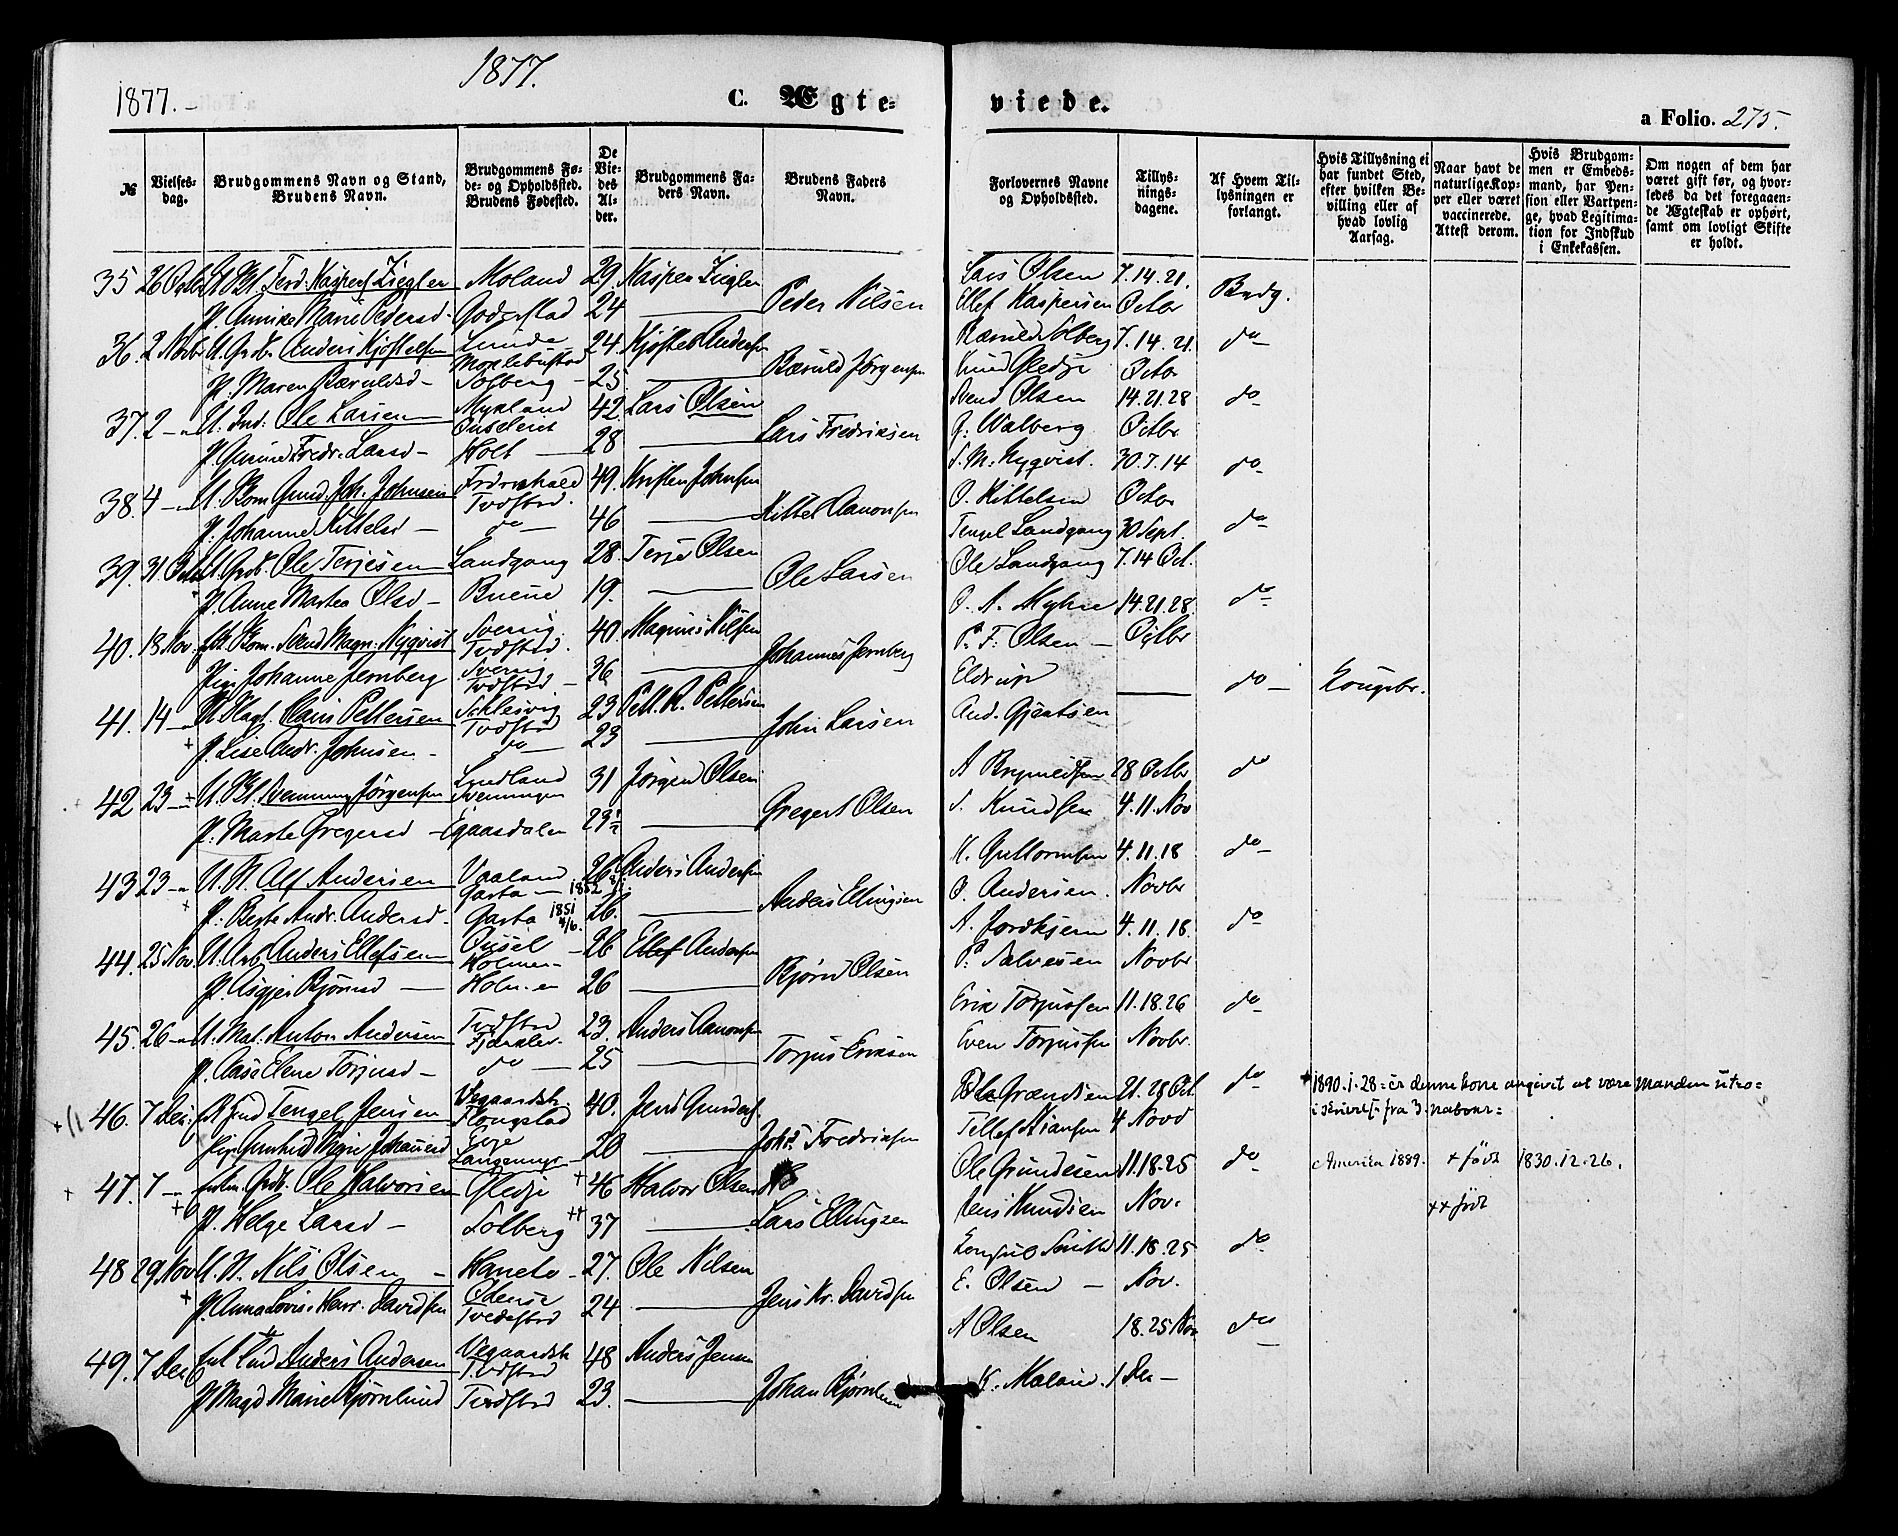 1877.
1877.–
C. Ægte-
viede.
a Folio. 275.
№
Vielses-
dag.
Brudgommens Navn og Stand,
Brudens Navn.
Brudgommens Fø-
de- og Opholdssted.
Brudens Fødested.
De
Vie-
des
Al-
der.
Brudgommens Fa-
ders Navn.
Brudens Faders
Navn.
Forlovernes Navne
og Opholdssted.
Tillys-
nings-
dagene.
Af Hvem Til-
lysningen er
forlangt.
Hvis Tillysning ei
har fundet Sted,
efter hvilken Be-
villing eller af
hvad lovlig
Aarsag.
Naar havt de
naturlige Kop-
per eller været
vaccinerede.
Attest derom.
Hvis Brudgom-
men er Embeds-
mand, har Pen-
sion eller Vartpen-
ge, hvad Legitima-
tion for Indskud
i Enkekassen.
Om nogen af dem har
været gift før, og hvor-
ledes da det foregaaen-
de Ægteskab er ophørt,
samt om lovligt Skifte
er holdt.
35 26 Octbr Ferd. Kaspers Ziegler Moland 29. Kasper Ziegler Lars Olsen 7.14.21. Brdg.
P. Marie Pedersd. Goderstad 24 Peder Nilsen Ellef Kaspersen Octbr
36. 2 Novbr U. Grdb. Anders Kjøstelsen Lunde 24. Kjøstel Andersen Solberg 7.14.21. do
P. Maren Bærulsd – Solberg – 25. Bæruld Jørgensen Knud Gledje Octbr
37. 2 – U. Ind: Ole Larsen Mykland 42 Lars Olsen Svend Olsen 14.21.28 do
P. Gurine Fredr. Larsd – Holt 28 Lars Fredriksen G. Walberg Octbr
38. 4 – Gund. Joh. Johnsen Fredrikshald Tvdstrd. 49. Kristen Johnsen S. M. Nyqvist. 30.7.14 do
P. Johanne Kittelsd – do 46 Kittel Aanonsen O. Kittelsen Octbr
39. 31 Octbr U. Grdb. Ole Terjesen Landgang 28. Terje Olsen Tengel Landgang 30 Sept. do
P. Anne Martea Olsd – 19. Ole Larsen Ole Landgang 7.14 Oct.
40. 13 Nov. Svend Magn. Nyqvist Sverrig. Tvdstrd. 40. Magnus Nilsen O. A. Myhre 14.21.28. do
Pige Johanne Jernberg Sverrig Tvdstrd – 26 Johannes Jernberg P. F. Olsen – Octbr
41. 14 – Claus Pettersen Schlesvig Tvdstrd 23 Pett. R. Pettersen Eldrup do – Kongebr.
P. Lise Andr. Johnsen – do 23 John Larsen And. Gjertsen
42 23 – Svenning Jørgensen Lindland Svenningen 31 Jørgen Olsen A Brynildsen 28 Octbr do
P. Marte Gregersd – Egaasdalen 29½ Gregert Olsen S. Knudsen 4.11. Nov
43 23 – U. N. Alf Andersen Vaaland Garta – 1852 26 Anders Andersen K. Guttormsen 4.11.18 do
P. Berte Andr. Andersd. Garta 1851 4/6. 26. Anders Ellingsen O. Andersen. Novbr
44. 25 Nov. U. Arb Anders Ellefsen Ousel Holmen – 26 Ellef Andersen A. 4.11.18 do
P. Asgjer Bjørnsd Holmen 26 Bjørn Olsen P. Salvesen Novbr
45. 26 – U. Mat. Anton Andersen Tvdstrd 23. Anders Aanonsen Erik Torjussen 11.18.26 do
P. Aase Elene Torjusd – do 25 Torjus Eriksen Even Torjussen Novbr.
46. 7 Dec. Tengel Jensen Vegaardsh. 40. Jens Gunders. Ole Grændsen 21.28 Oct. do + 1890.1.28 = er denne kone angivet at være manden utro =
Pige Johannesd Eoje 20 Johs Fredriksen Tellef Kiansen 4 Novb fra 3 naboer =
47. 7 – Enkm. Grdb. Ole Halvorsen Gledje + 46 Halvor Olsen Ole Gundesen 11.18.25 do Amerika 1889. + født 1830.12.26.
P. Helge Larsd – Solberg ++ 37 Lars Ellingsen Jens Knudsen Nov. ++ født
48 29 Nov U. N. Nils Olsen – Haneto – 27. Ole Nilsen Smith 11.18.25 do
P. Anna Lovis. Henr. Davidsen Odense Tvedestrd 24 Jens Kr. Davidsen E. Olsen – Nov.
49. 7 Dec Enk. Anders Andersen Vegaardsh Tvdstrd 48 Anders Jensen A Olsen 18.25 Nov do
P Magd Marie Bjørnlund Tvdstrd 23. Johan Bjørnlund K. Moland. 1 Dec –